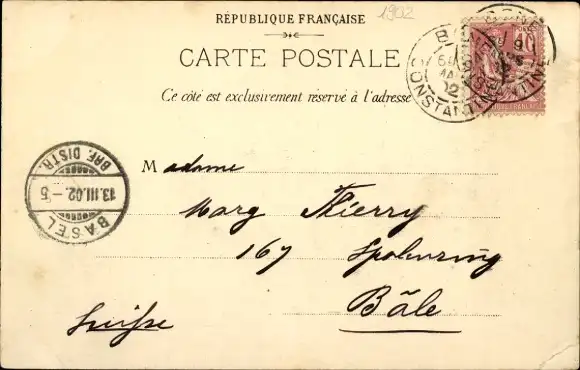 RÉPUBLIQUE FRANÇAISE
1902
CARTE POSTALE
Ce côté est exclusivement réservé à l'adresse
BÔNE
CONSTANTINE
10
BASEL
13.III.02.-5
BRF. DISTR.
Madame
Marg Thierry
167 Spalenring
Bâle
Suisse